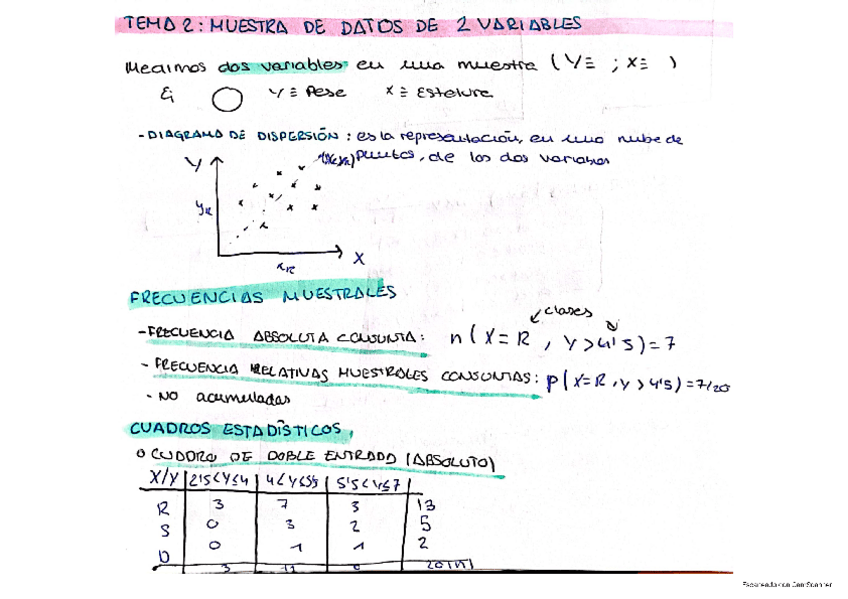 TEMA 2: MUESTRA DE DATOS DE 2 VARIABLES
Medimos dos variables en una muestra (Y≡ ; X≡ )
Ej Y≡ Peso X≡ Estatura
- DIAGRAMA DE DISPERSIÓN: es la representación, en una nube de
(xₖ,yₖ) puntos, de los dos variables
Y
yₖ
X
xₖ
FRECUENCIAS MUESTRALES
clases
- FRECUENCIA ABSOLUTA CONJUNTA: n(X=R, Y>4'5)=7
- FRECUENCIA RELATIVAS MUESTRALES CONJUNTAS: p(X=R, Y>4'5)=7/20
- NO acumuladas
CUADROS ESTADÍSTICOS
CUADRO DE DOBLE ENTRADA (ABSOLUTO)
X/Y 2'5<Y≤4 4<Y≤5'5 5'5<Y≤7
R 3 7 3 13
S 0 3 2 5
0 1 1 2
3 11 6 20(n)
Escaneado con CamScanner